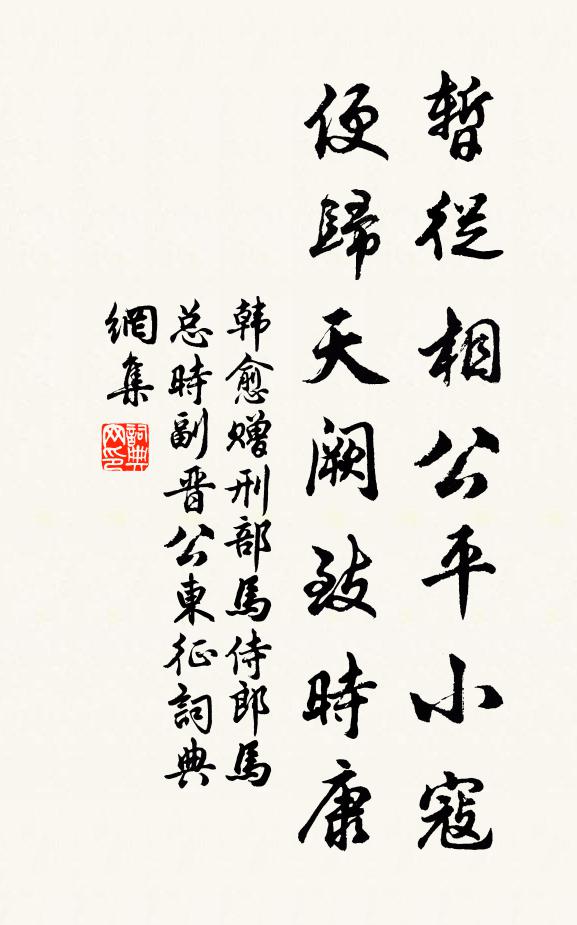 暫從相公平小寇
便歸天闕致時康
韩愈赠刑部馬侍郎馬
总時副晋公東征詞典
網集
詞典
网印